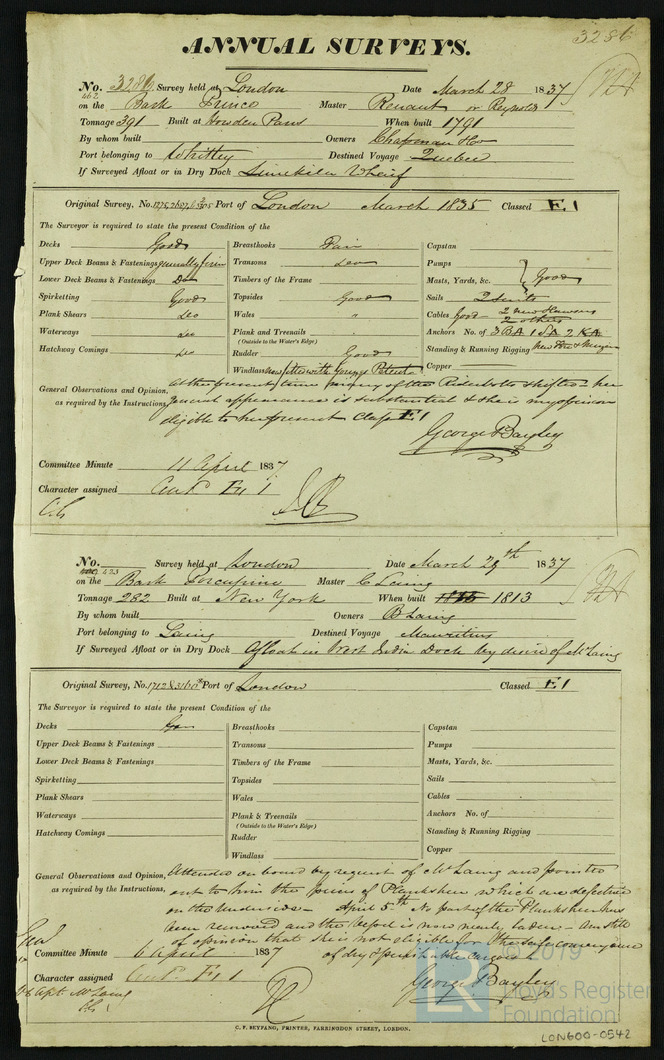 3286
ANNUAL SURVEYS.
No. 3286 Survey held at London Date March 28 1837
462
on the Bark Prince Master Renaut or Reynolds
Tonnage 391 Built at Howden Pans When built 1791
By whom built Owners Chapman & Co
Port belonging to Whitby Destined Voyage Quebec
If Surveyed Afloat or in Dry Dock Limekiln Wharf
Original Survey, No. Port of London March 1835 Classed E1
The Surveyor is required to state the present Condition of the
Decks Good
Upper Deck Beams & Fastenings generally firm
Lower Deck Beams & Fastenings Do
Spirketting Good
Plank Shears Do
Waterways Do
Hatchway Comings Do
Breasthooks Fair
Transoms Do
Timbers of the Frame
Topsides Good
Wales "
Plank and Treenails
(Outside to the Water's Edge)
Rudder Good
Windlass now fitted with Youngs Patent
Capstan
Pumps
Masts, Yards, &c. Good
Sails 2 Suits
Cables Good 2 new Hawsers
2 others
Anchors No. of 3 BA 1 SA 2 KA
Standing & Running Rigging
Copper
General Observations and Opinion, At the present time
as required by the Instructions, general appearance is substantial & she is in my opinion
eligible to her present Class E1
George Bayley
Committee Minute 11 April 1837
Character assigned Cont'd E1
No. Survey held at London Date March 29th 1837
423
on the Bark Porcupine Master C Laing
Tonnage 282 Built at New York When built 1813
By whom built Owners B Laing
Port belonging to Laing Destined Voyage Mauritius
If Surveyed Afloat or in Dry Dock Afloat in West India Dock by desire of Mr Laing
Original Survey, No. Port of London Classed E1
The Surveyor is required to state the present Condition of the
Decks
Upper Deck Beams & Fastenings
Lower Deck Beams & Fastenings
Spirketting
Plank Shears
Waterways
Hatchway Comings
Breasthooks
Transoms
Timbers of the Frame
Topsides
Wales
Plank & Treenails
(Outside to the Water's Edge)
Rudder
Windlass
Capstan
Pumps
Masts, Yards, &c.
Sails
Cables
Anchors No. of
Standing & Running Rigging
Copper
General Observations and Opinion, Attended on board by request of Mr Laing and pointed
as required by the Instructions, out to him the pieces of Plankshear which are defective
on the Underside - April 5th No part of the Plankshear has
been removed and the Vessel is now nearly laden - Am still
of opinion that she is not eligible for the safe conveyance
of dry & perishable cargoes
George Bayley
Committee Minute 6 April 1837
Character assigned Cont'd E1
Capt. McLaing
C. F. SEYFANG, PRINTER, FARRINGDON STREET, LONDON.
LR
© 2019
Lloyd's Register
Foundation
LON600-0542